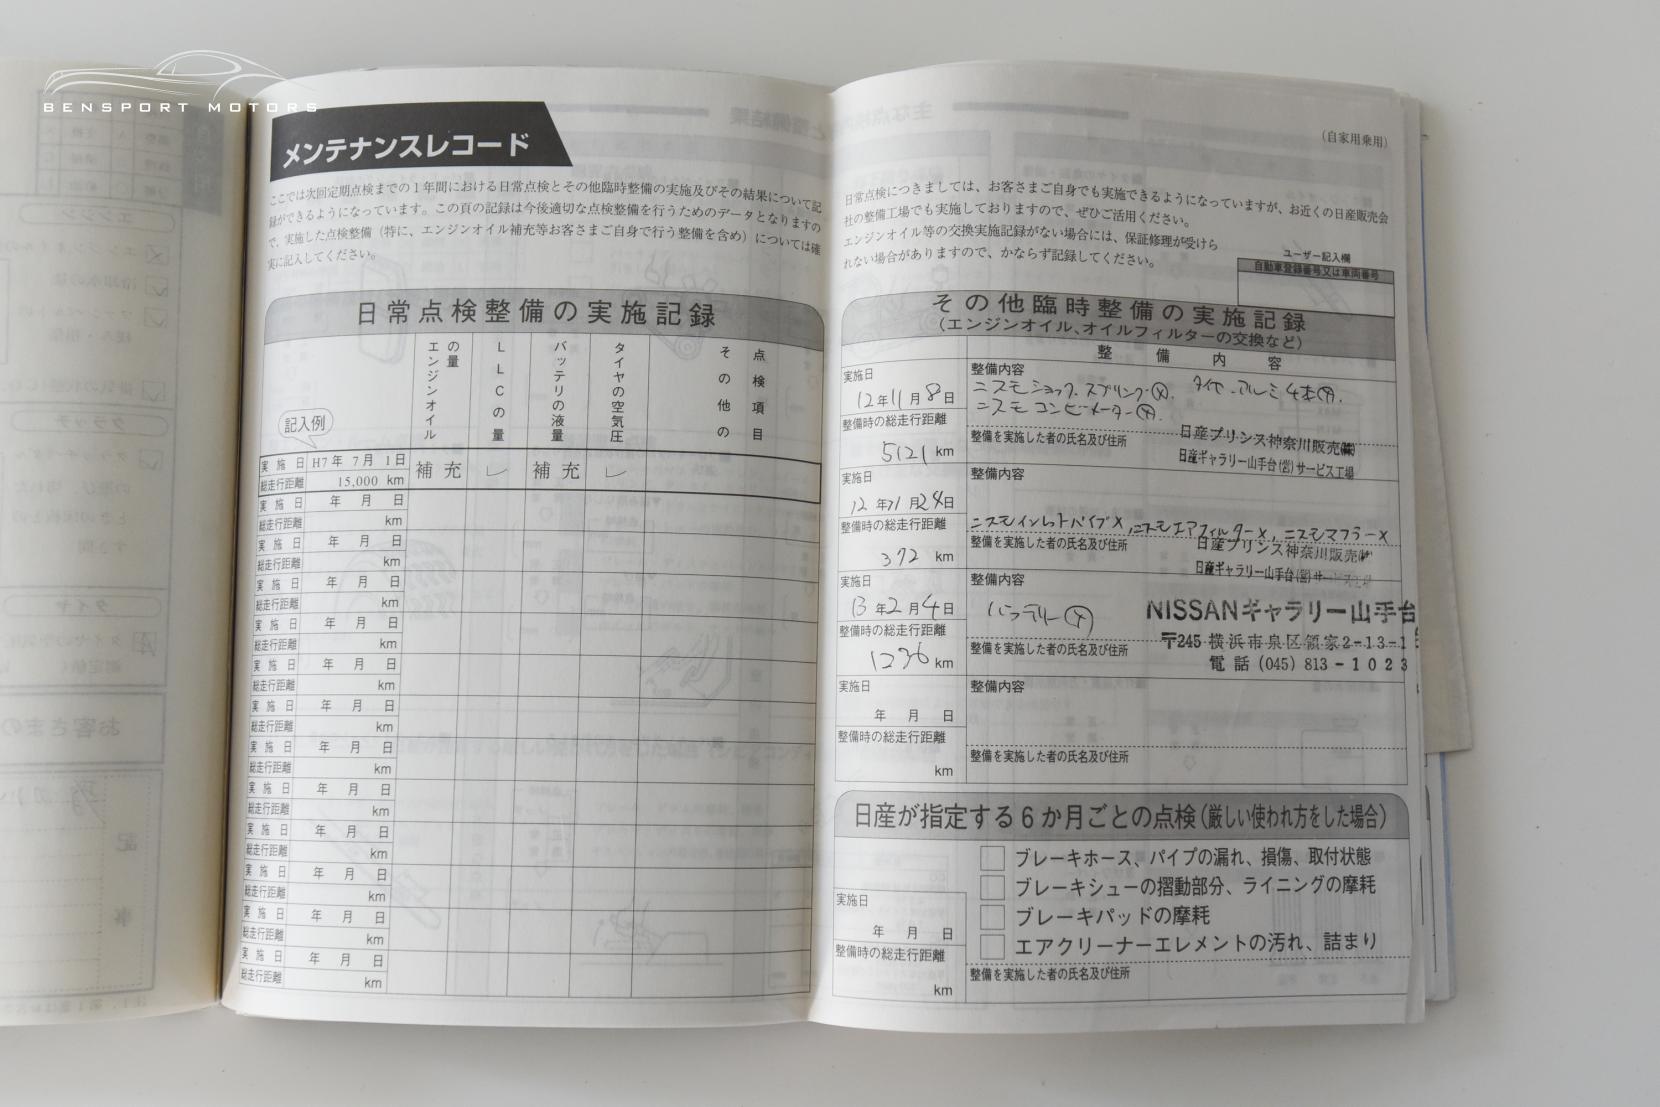 BENSPORT MOTORS
メンテナンスレコード
ここでは次回定期点検までの1年間における日常点検とその他臨時整備の実施及びその結果について記
録ができるようになっています。この頁の記録は今後適切な点検整備を行うためのデータとなりますの
で、実施した点検整備（特に、エンジンオイル補充等お客さまご自身で行う整備を含め）については確
実に記入してください。
日常点検整備の実施記録
エンジンオイルの量
LLCの量
バッテリの液量
タイヤの空気圧
その他の点検項目
記入例
実施日 H7年 7月 1日 補充 ✓ 補充 ✓
総走行距離 15,000 km
実施日 年 月 日
総走行距離 km
実施日 年 月 日
総走行距離 km
実施日 年 月 日
総走行距離 km
実施日 年 月 日
総走行距離 km
実施日 年 月 日
総走行距離 km
実施日 年 月 日
総走行距離 km
実施日 年 月 日
総走行距離 km
実施日 年 月 日
総走行距離 km
実施日 年 月 日
総走行距離 km
実施日 年 月 日
総走行距離 km
実施日 年 月 日
総走行距離 km
実施日 年 月 日
総走行距離 km
（自家用乗用）
日常点検につきましては、お客さまご自身でも実施できるようになっていますが、お近くの日産販売会
社の整備工場でも実施しておりますので、ぜひご活用ください。
エンジンオイル等の交換実施記録がない場合には、保証修理が受けら
れない場合がありますので、かならず記録してください。
ユーザー記入欄
自動車登録番号又は車両番号
その他臨時整備の実施記録
（エンジンオイル、オイルフィルターの交換など）
整備内容
実施日
12年11月8日
整備時の総走行距離
5121 km
整備内容
ニスモショック.スプリング(X). タイヤ.アルミ4本
ニスモコンビメーター
整備を実施した者の氏名及び住所
日産プリンス神奈川販売㈱
日産ギャラリー山手台(営)サービス工場
実施日
12年11月24日
整備時の総走行距離
372 km
整備内容
ニスモインレットパイプX, ニスモエアフィルターX, ニスモマフラーX
整備を実施した者の氏名及び住所
日産プリンス神奈川販売
日産ギャラリー山手台(営)サービス工場
実施日
13年2月4日
整備時の総走行距離
1236 km
整備内容
バッテリー
整備を実施した者の氏名及び住所
NISSANギャラリー山手台
〒245 横浜市泉区領家2-13-1
電話 (045) 813-1023
実施日
年 月 日
整備時の総走行距離
km
整備内容
整備を実施した者の氏名及び住所
日産が指定する6か月ごとの点検（厳しい使われ方をした場合）
ブレーキホース、パイプの漏れ、損傷、取付状態
ブレーキシューの摺動部分、ライニングの摩耗
ブレーキパッドの摩耗
エアクリーナーエレメントの汚れ、詰まり
実施日
年 月 日
整備時の総走行距離
km
整備を実施した者の氏名及び住所